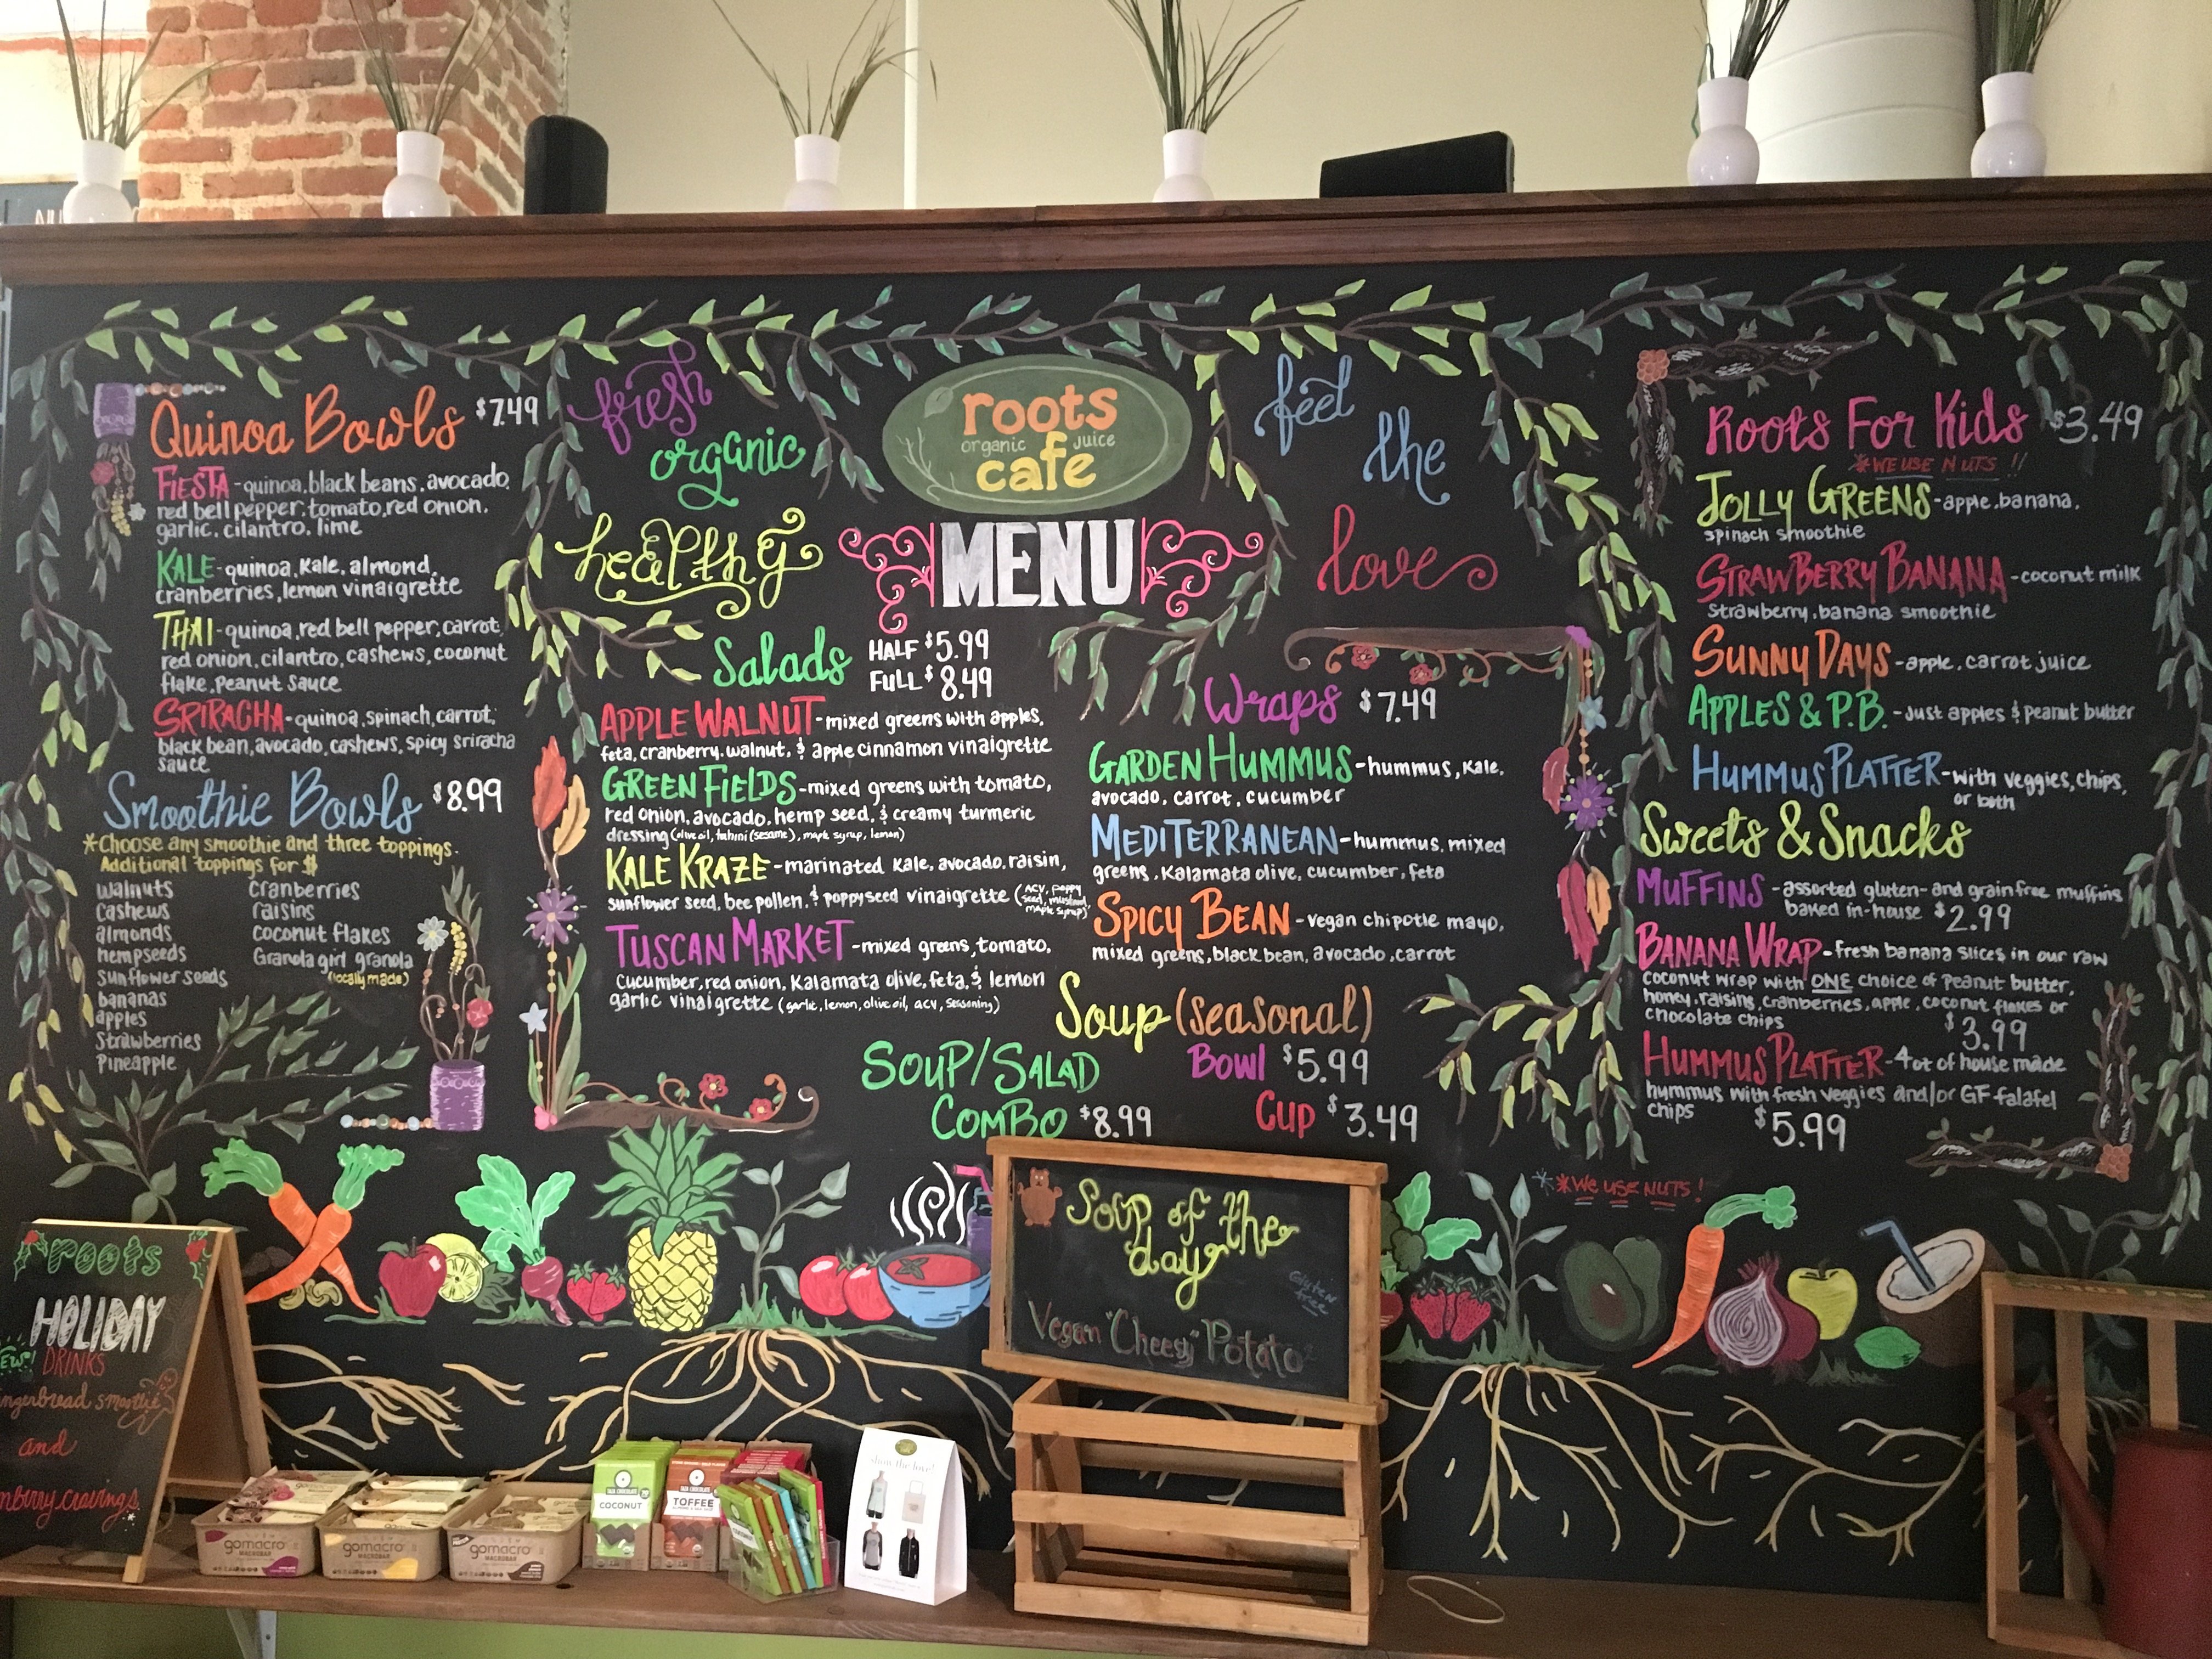 Quinoa Bowls $7.49
FIESTA - quinoa, black beans, avocado,
red bell pepper, tomato, red onion,
garlic, cilantro, lime
KALE - quinoa, kale, almond,
cranberries, lemon vinaigrette
THAI - quinoa, red bell pepper, carrot,
red onion, cilantro, cashews, coconut
flake, peanut sauce
SRIRACHA - quinoa, spinach, carrot,
black bean, avocado, cashews, spicy sriracha
sauce
Smoothie Bowls $8.99
*Choose any smoothie and three toppings.
Additional toppings for $
walnuts
cashews
almonds
hempseeds
sunflower seeds
bananas
apples
strawberries
pineapple
cranberries
raisins
coconut flakes
Granola girl granola
(locally made)
fresh
organic
healthy
roots
organic juice
cafe
MENU
feel
the
love
Salads HALF $5.99
FULL $8.49
APPLE WALNUT - mixed greens with apples,
feta, cranberry, walnut, & apple cinnamon vinaigrette
GREEN FIELDS - mixed greens with tomato,
red onion, avocado, hemp seed, & creamy turmeric
dressing (olive oil, tahini (sesame), maple syrup, lemon)
KALE KRAZE - marinated kale, avocado, raisin,
sunflower seed, bee pollen, & poppyseed vinaigrette (ACV, poppy
seed, mustard,
maple syrup)
TUSCAN MARKET - mixed greens, tomato,
cucumber, red onion, kalamata olive, feta, & lemon
garlic vinaigrette (garlic, lemon, olive oil, acv, seasoning)
Wraps $7.49
GARDEN HUMMUS - hummus, kale,
avocado, carrot, cucumber
MEDITERRANEAN - hummus, mixed
greens, kalamata olive, cucumber, feta
SPICY BEAN - vegan chipotle mayo,
mixed greens, black bean, avocado, carrot
Soup (seasonal)
Bowl $5.99
Cup $3.49
SOUP/SALAD
COMBO $8.99
Roots For Kids $3.49
*WE USE NUTS!!
JOLLY GREENS - apple, banana,
spinach smoothie
STRAWBERRY BANANA - coconut milk
strawberry, banana smoothie
SUNNY DAYS - apple, carrot juice
APPLES & P.B. - Just apples & peanut butter
HUMMUS PLATTER - with veggies, chips,
or both
Sweets & Snacks
MUFFINS - assorted gluten- and grain free muffins
baked in-house $2.99
BANANA WRAP - fresh banana slices in our raw
coconut wrap with ONE choice of peanut butter,
honey, raisins, cranberries, apple, coconut flakes or
chocolate chips
$3.99
HUMMUS PLATTER - 4 oz of house made
hummus with fresh veggies and/or GF falafel
chips $5.99
**WE USE NUTS!
Soup of the
day
Gluten
free
Vegan "Cheesy" Potato
roots
HOLIDAY
DRINKS
smoothie
and
cravings
gomacro
MACROBAR
gomacro
MACROBAR
gomacro
MACROBAR
COCONUT
TOFFEE
show the love!